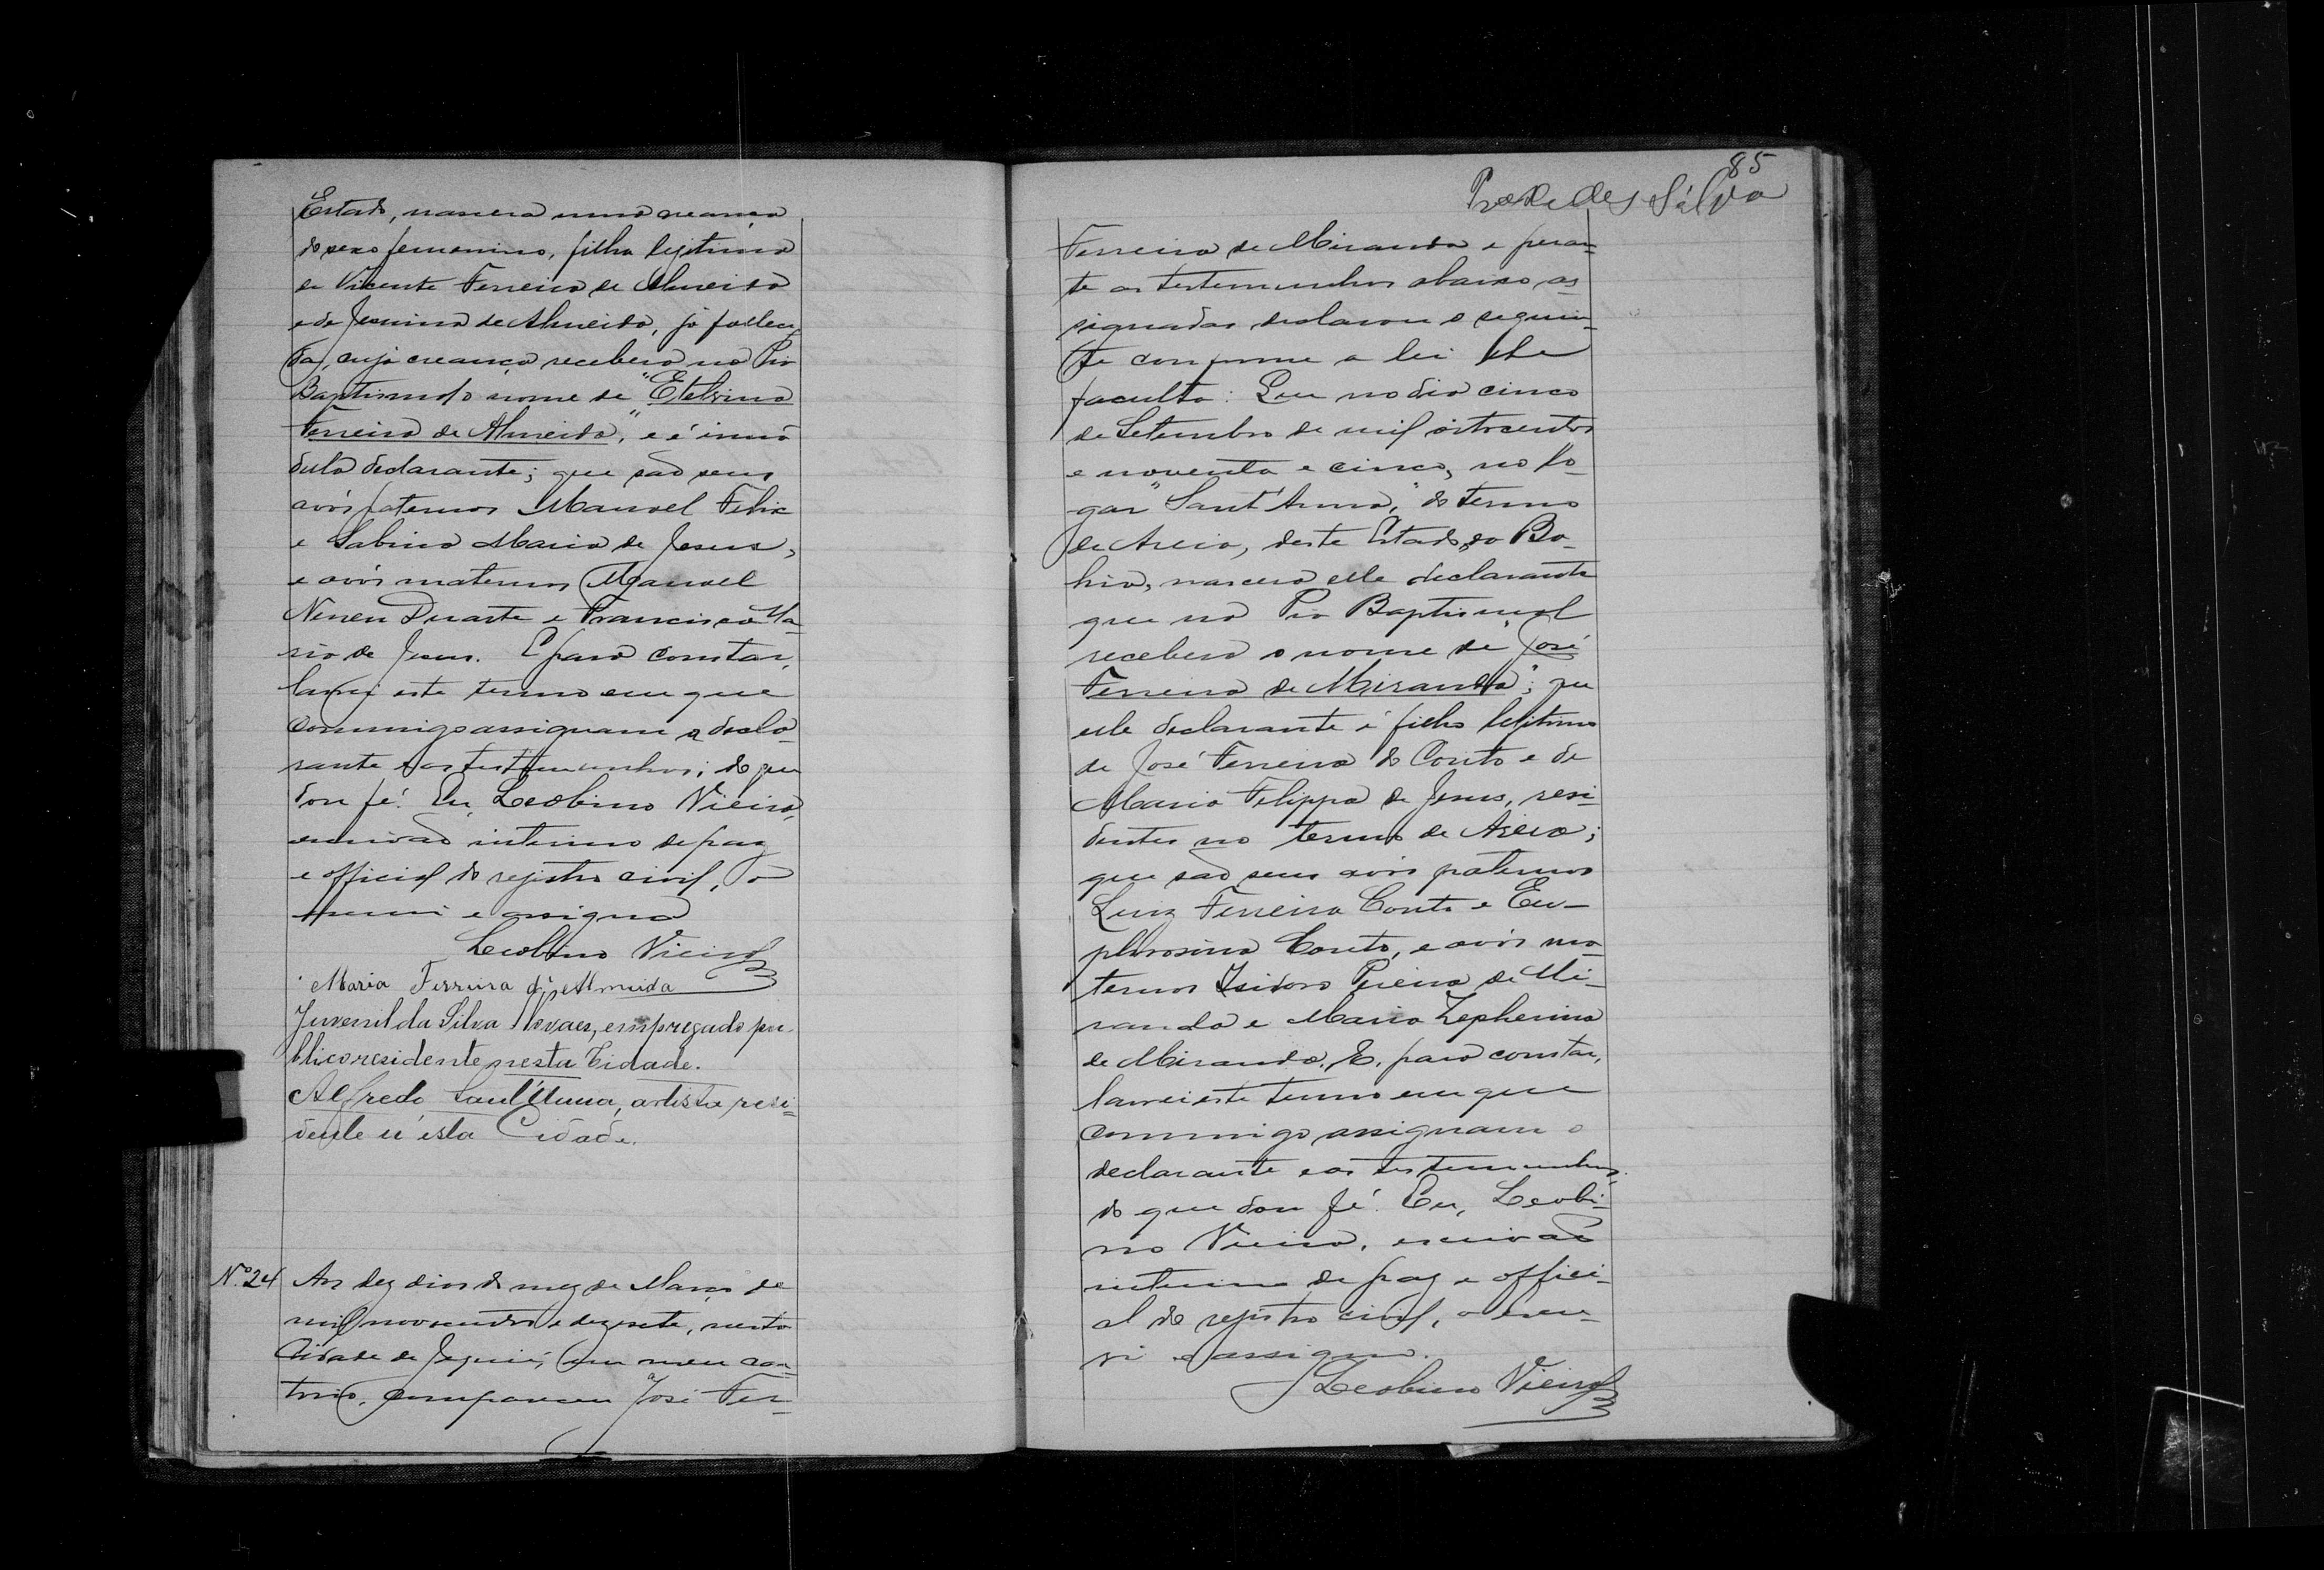 Estado, nascera uma creança
do sexo femenino, filha legitima
de Vicente Ferreira de Almeida
e de Jesuina de Almeida, já falleci
da, cuja creança recebera na Pia
Baptismal o nome de "Etelvina
Ferreira de Almeida", e é irmã
della declarante; que são seus
avós paternos Manoel Felix
e Sabina Maria de Jesus,
e avós maternos Manoel
Duarte e Francisca Ma-
ria de Jesus. E para constar,
lavrei este termo em que
commigo assignam a decla-
rante e as testemunhas; do que
dou fé. Eu, Leobino Vieira,
escrivão interino de paz
e official do registro civil, o
escrevi e assigno
Leobino Vieira
Maria Ferreira de Almeida
Juvenil da Silva Novaes, empregado pu-
blico residente nesta Cidade.
Alfredo Sant'Anna, artista resi-
dente n'esta Cidade.
Nº 24 Aos dez dias do mez de Março de
mil novecentos e dezesete, nesta
Cidade de Jequié, em meu car-
torio, compareceu José Fer-
85
Silva
Ferreira de Miranda e peran-
te as testemunhas abaixo as-
signadas declarou o seguin-
te conforme a lei lhe
faculta: Que no dia cinco
de Setembro de mil oitocentos
e noventa e cinco, no lo-
gar "Sant'Anna," do termo
de Areia, deste Estado da Ba-
hia, nascera elle declarante
que na Pia Baptismal
recebera o nome de "José
Ferreira de Miranda"; que
elle declarante é filho legitimo
de José Ferreira do Couto e de
Maria Felippa de Jesus, resi-
dentes no termo de Areia;
que são seus avós paternos
Luiz Ferreira Couto e Eu-
phrosina Couto, e avós ma-
ternos Isidoro Pereira de Mi-
randa e Maria Zepherina
de Miranda. E, para constar,
lavrei este termo em que
commigo assignam o
declarante e as testemunhas;
do que dou fé. Eu, Leobi-
no Vieira, escrivão
interino de paz e offici-
al do registro civil, o escre-
vi e assigno.
Leobino Vieira